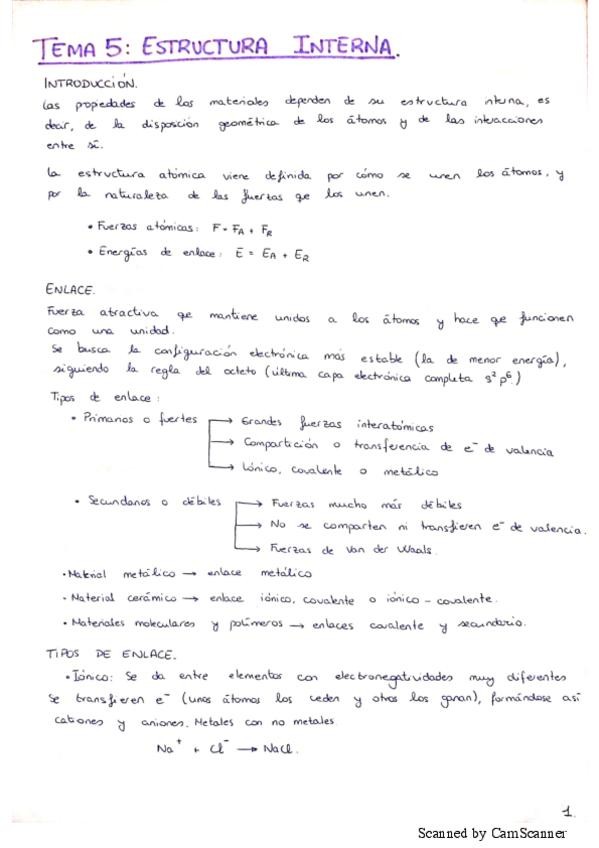 TEMA 5: ESTRUCTURA INTERNA.
INTRODUCCIÓN.
Las propiedades de los materiales dependen de su estructura interna, es
decir, de la disposición geométrica de los átomos y de las interacciones
entre sí.
La estructura atómica viene definida por cómo se unen los átomos, y
por la naturaleza de las fuerzas que los unen.
• Fuerzas atómicas: F = FA + FR
• Energías de enlace: E = EA + ER
ENLACE.
Fuerza atractiva que mantiene unidos a los átomos y hace que funcionen
como una unidad.
Se busca la configuración electrónica más estable (la de menor energía),
siguiendo la regla del octeto (última capa electrónica completa s² p⁶)
Tipos de enlace:
• Primarios o fuertes → Grandes fuerzas interatómicas
→ Compartición o transferencia de e⁻ de valencia
→ Iónico, covalente o metálico
• Secundarios o débiles → Fuerzas mucho más débiles
→ No se comparten ni transfieren e⁻ de valencia.
→ Fuerzas de Van der Waals.
• Material metálico → enlace metálico
• Material cerámico → enlace iónico, covalente o iónico - covalente.
• Materiales moleculares y polímeros → enlaces covalente y secundario.
TIPOS DE ENLACE.
• Iónico: Se da entre elementos con electronegatividades muy diferentes
Se transfieren e⁻ (unos átomos los ceden y otros los ganan), formándose así
cationes y aniones. Metales con no metales.
Na⁺ + Cl⁻ → NaCl.
1.
Scanned by CamScanner